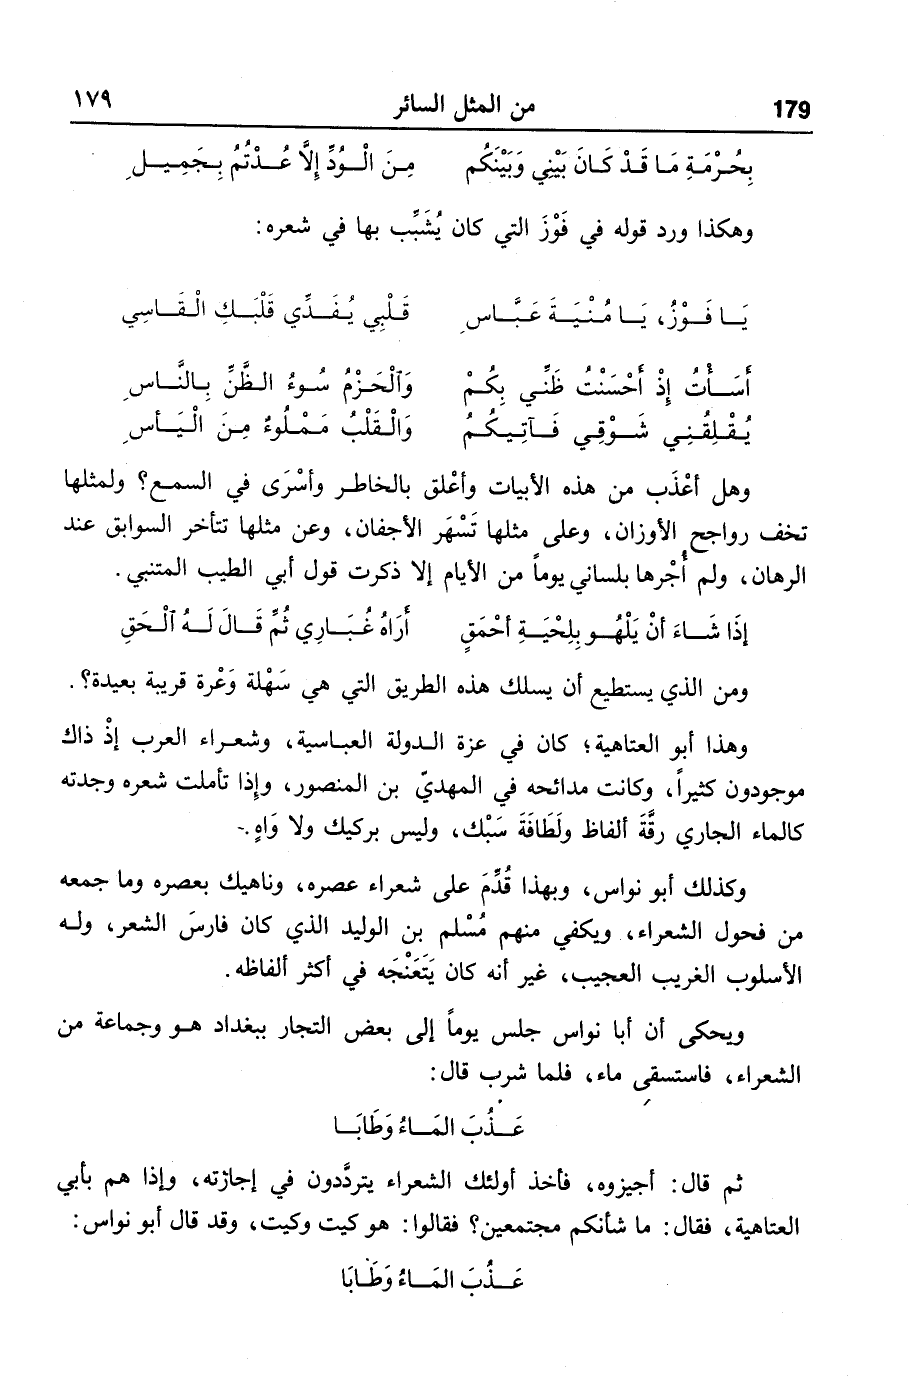 179 من المثل السائر ١٧٩
بِحُرْمَةِ مَا قَدْ كَانَ بَيْنِي وَبَيْنَكُم مِنَ الْوُدِّ إِلَّا عُدْتُمُ بِجَمِيلِ
وهكذا ورد قوله في فَوْزَ التي كان يُشَبِّب بها في شعره:
يَا فَوْزُ، يَا مُنْيَةَ عَبَّاسِ قَلْبِي يُفَدِّي قَلْبَكِ الْقَاسِي
أَسَأْتُ إِذْ أَحْسَنْتُ ظَنِّي بِكُمْ وَٱلْحَزْمُ سُوءُ الظَّنِّ بِالنَّاسِ
يُقْلِقُنِي شَوْقِي فَآتِيكُمُ وَالْقَلْبُ مَمْلُوءٌ مِنَ الْيَأسِ
وهل أعْذَب من هذه الأبيات وأعْلق بالخاطر وأسْرَى في السمع؟ ولمثلها
تخف رواجح الأوزان، وعلى مثلها تَسْهَر الأجفان، وعن مثلها تتأخر السوابق عند
الرهان، ولم أُجْرها بلساني يوماً من الأيام إلا ذكرت قول أبي الطيب المتنبي.
إذَا شَاءَ أنْ يَلْهُو بِلِحْيَةِ أحْمَقٍ أَرَاهُ غُبَارِي ثُمَّ قَالَ لَهُ ٱلْحَقِ
ومن الذي يستطيع أن يسلك هذه الطريق التي هي سَهْلة وَعْرة قريبة بعيدة؟.
وهذا أبو العتاهية؛ كان في عزة الدولة العباسية، وشعراء العرب إذْ ذاك
موجودون كثيراً، وكانت مدائحه في المهديّ بن المنصور، وإذا تأملت شعره وجدته
كالماء الجاري رقَّةَ ألفاظ ولَطَافَةَ سَبْك، وليس بركيك ولا وَاهٍ.
وكذلك أبو نواس، وبهذا قُدِّمَ على شعراء عصره، وناهيك بعصره وما جمعه
من فحول الشعراء، ويكفي منهم مُسْلم بن الوليد الذي كان فارسَ الشعر، وله
الأسلوب الغريب العجيب، غير أنه كان يَتَعَنْجَه في أكثر ألفاظه.
ويحكى أن أبا نواس جلس يوماً إلى بعض التجار ببغداد هو وجماعة من
الشعراء، فاستسقى ماء، فلما شرب قال:
عَذُبَ المَاءُ وَطَابَا
ثم قال: أجيزوه، فأخذ أولئك الشعراء يتردَّدون في إجازته، وإذا هم بأبي
العتاهية، فقال: ما شأنكم مجتمعين؟ فقالوا: هو كيت وكيت، وقد قال أبو نواس:
عَذُبَ المَاءُ وَطَابَا